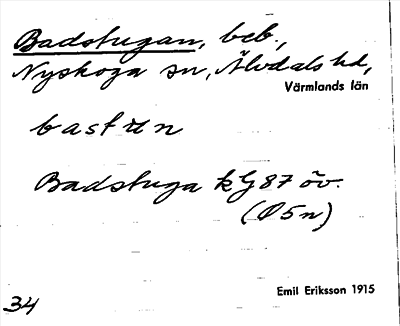 Badstugan, beb.,
Nyskoga sn, Älvdals hd,
Värmlands län
bastun
Badstuga kG 87 öv.
(Ø5n)
Emil Eriksson 1915
34